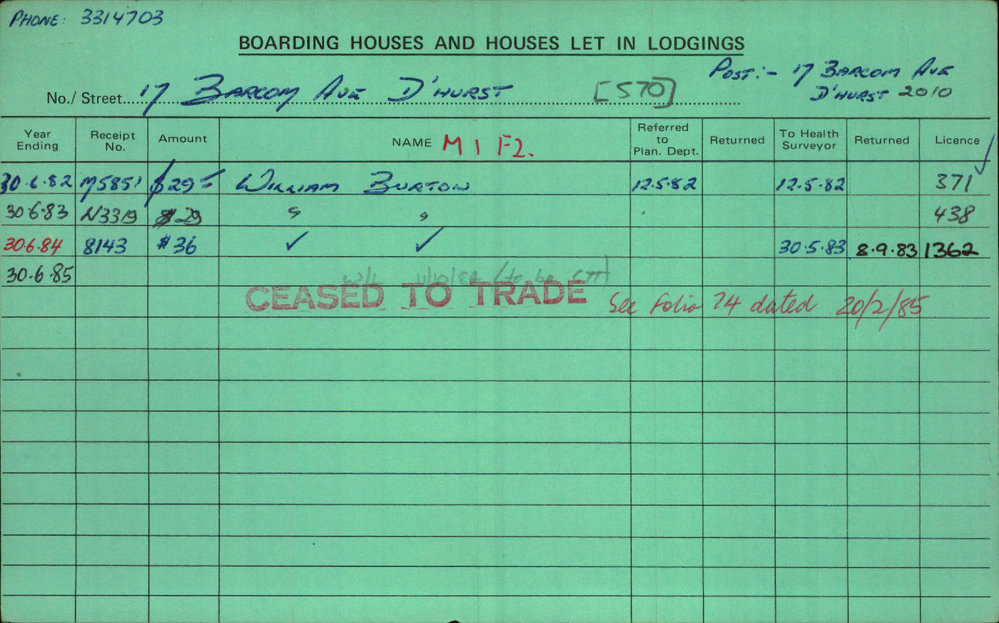 PHONE: 3314703
BOARDING HOUSES AND HOUSES LET IN LODGINGS
POST:- 17 BARCOM AVE
D'HURST 2010
No./ Street... 17 BARCOM AVE D'HURST [570]
Year Ending Receipt No. Amount NAME M 1 F2. Referred to Plan. Dept. Returned To Health Surveyor Returned Licence ✓
30.6.82 M5851 $29 WILLIAM BURTON 12.5.82 12.5.82 371
30.6.83 N3319 $29 " " 438
30.6.84 8143 $36 ✓ ✓ 30.5.83 8.9.83 1362
30.6.85 (to be
CEASED TO TRADE See Folio 74 dated 20/2/85